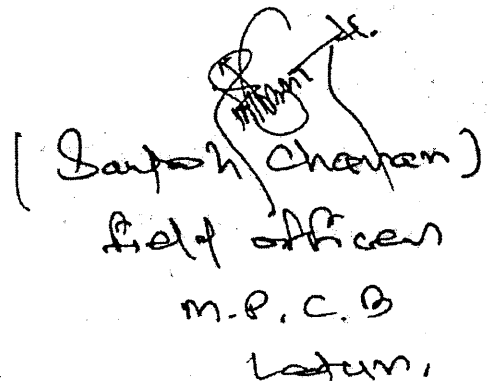 (Santosh Chavan)
field officer
M.P.C.B
Latur.